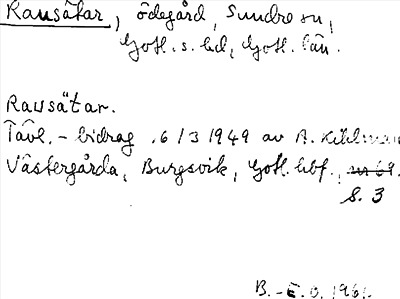 Rausätar, ödegård, Sundre sn,
Gotl. s. hd, Gotl. län.
Rausätar.
Tävl. - bidrag . 6 / 3 1949 av A. Kihlman
Västergårda, Burgsvik, Gotl. hbf.,
S. 3
B. - E. O. 1961.